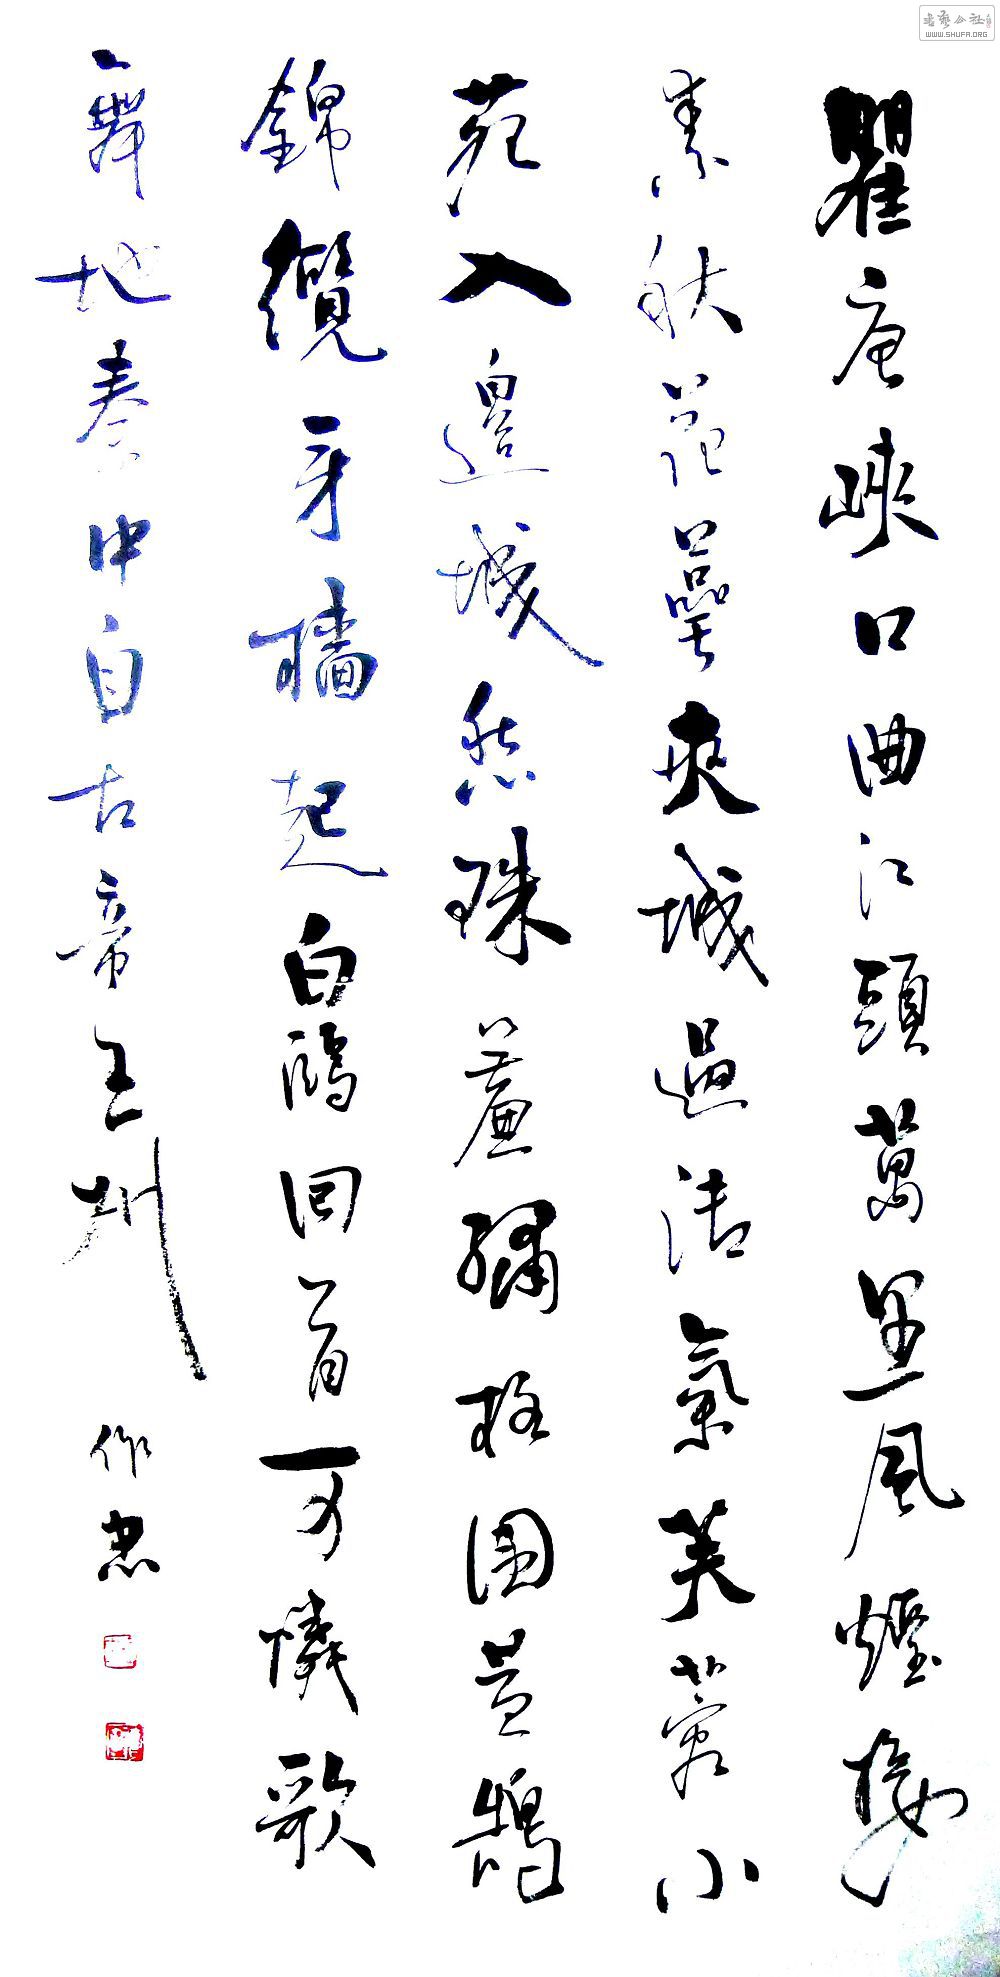 瞿唐峽口曲江頭萬里風煙接
素秋花萼夾城通御氣芙蓉小
苑入邊城愁珠簾繡柱圍黃鵠
錦纜牙檣起白鷗回首可憐歌
舞地秦中自古帝王州
作忠
书艺公社
WWW.SHUFA.ORG